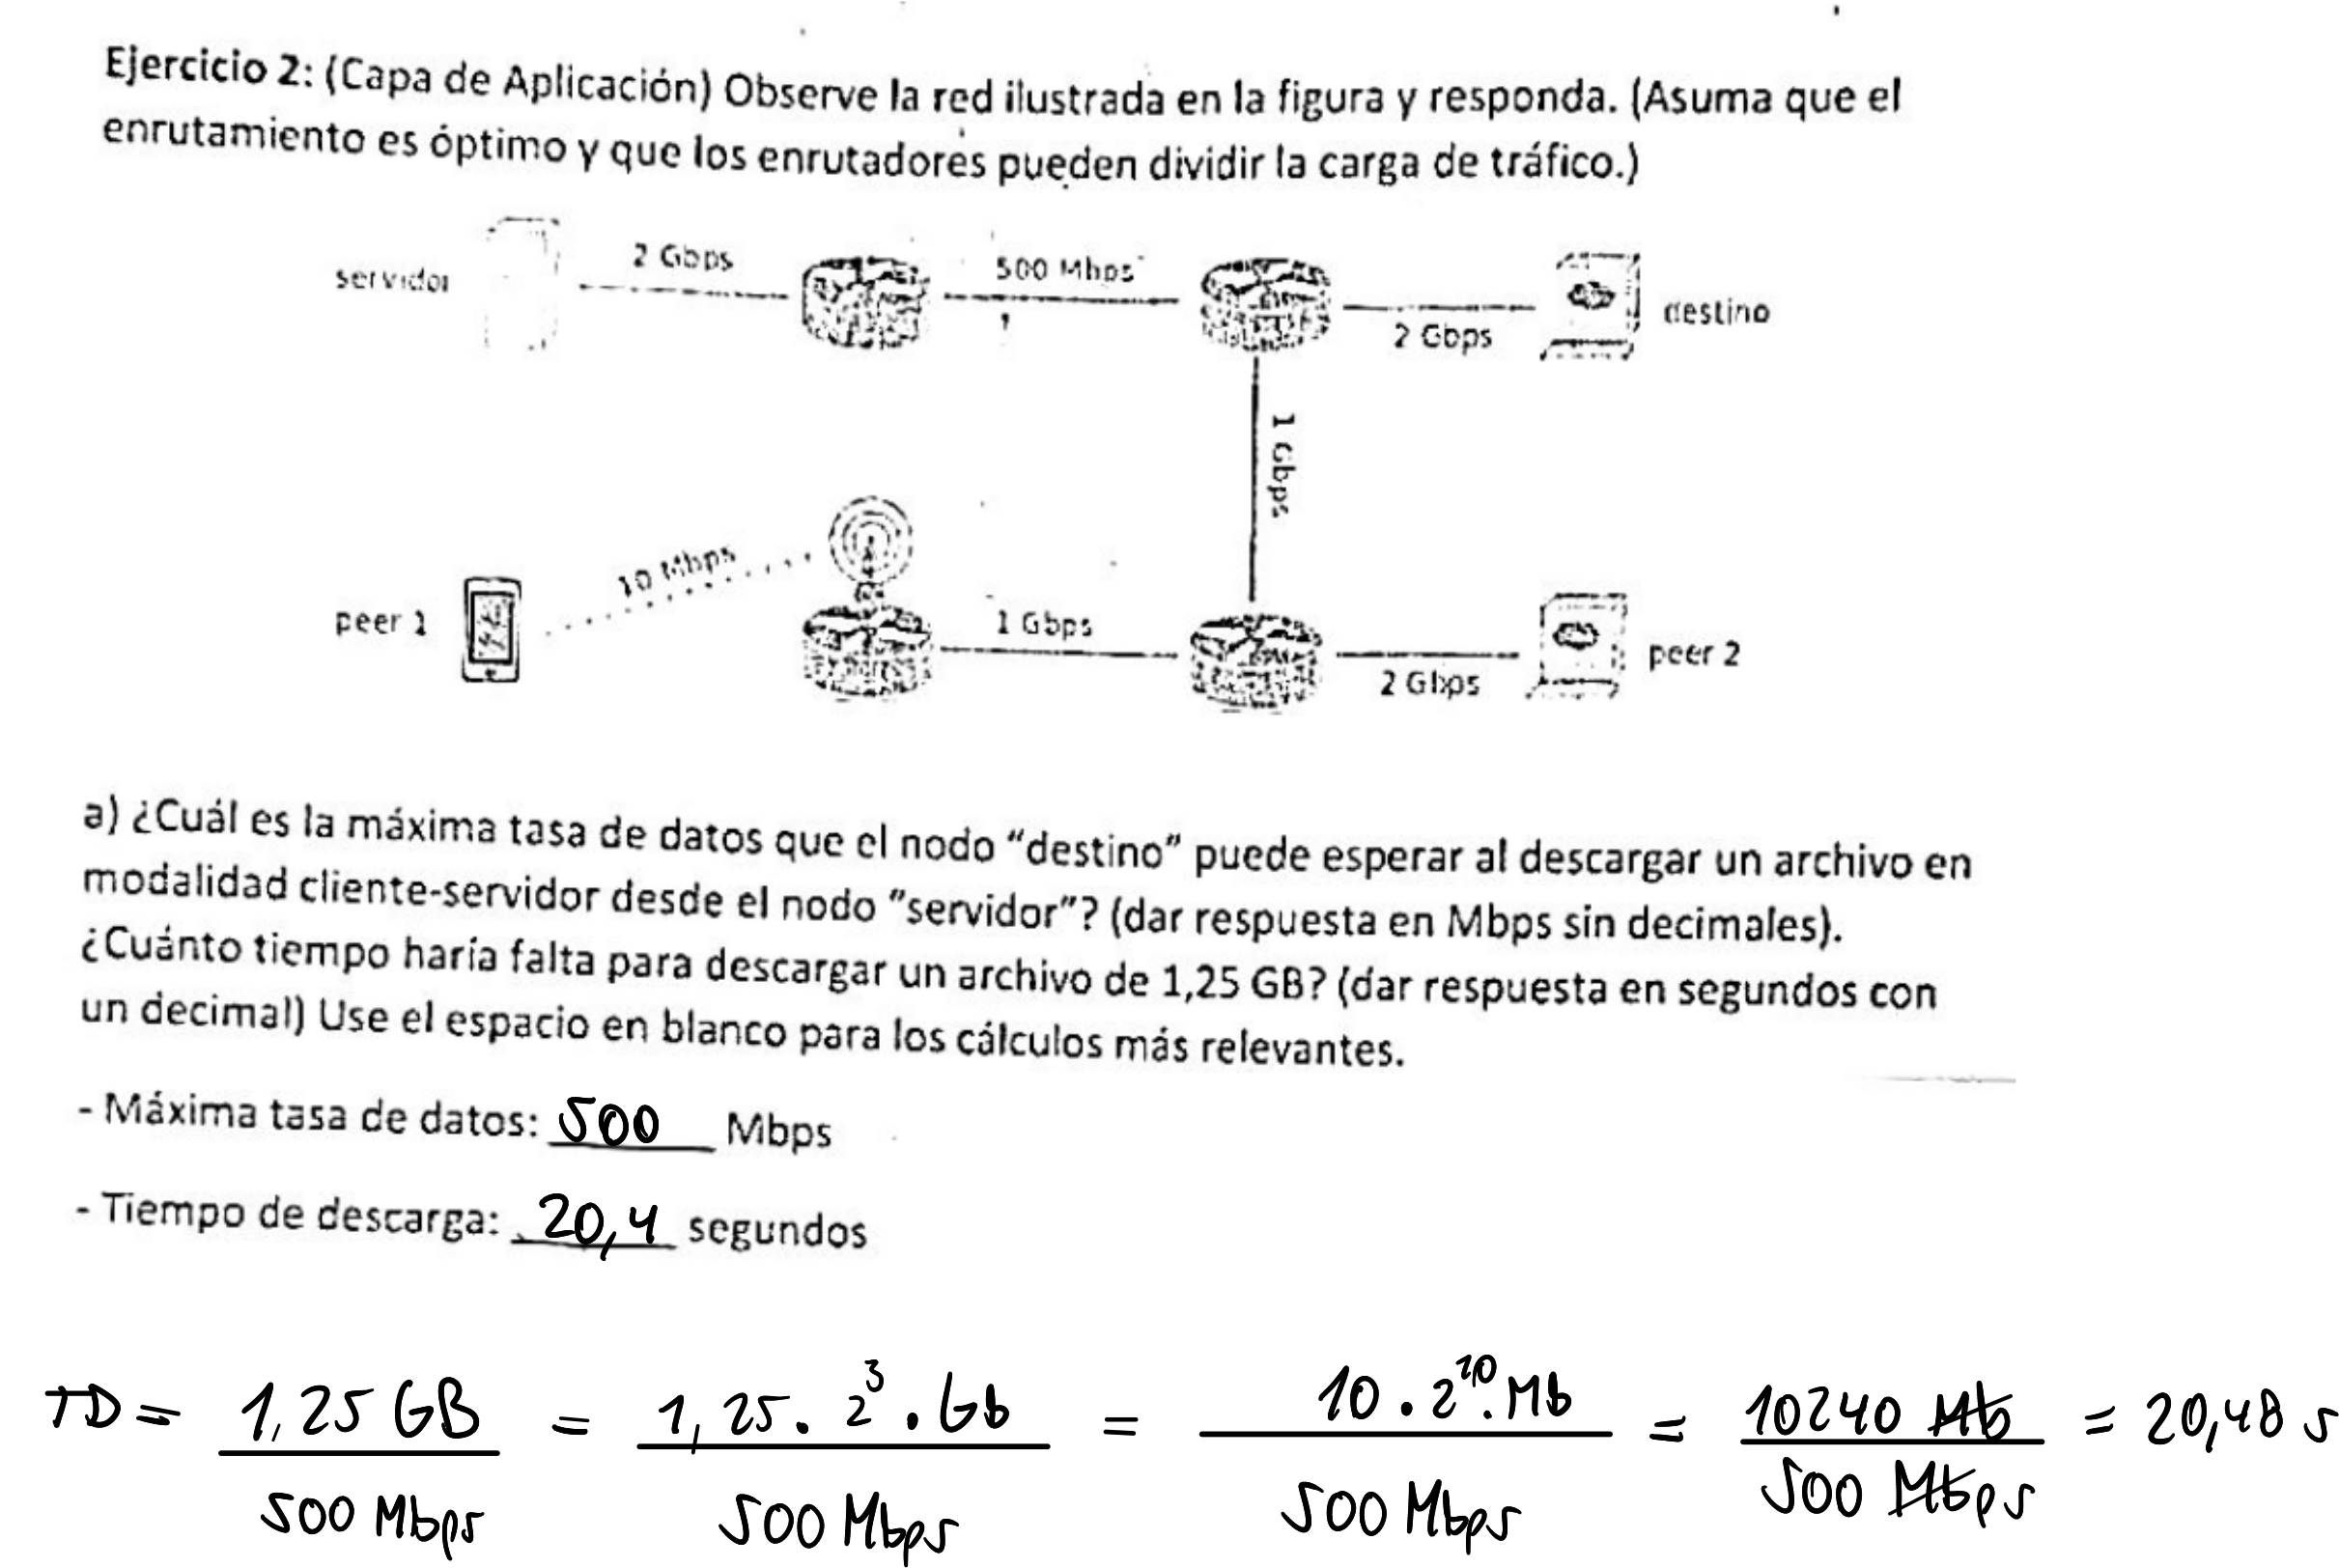 Ejercicio 2: (Capa de Aplicación) Observe la red ilustrada en la figura y responda. (Asuma que el
enrutamiento es óptimo y que los enrutadores pueden dividir la carga de tráfico.)
servidor 2 Gbps 500 Mbps 2 Gbps destino
1 Gbps
peer 1 10 Mbps 1 Gbps 2 Gbps peer 2
a) ¿Cuál es la máxima tasa de datos que el nodo "destino" puede esperar al descargar un archivo en
modalidad cliente-servidor desde el nodo "servidor"? (dar respuesta en Mbps sin decimales).
¿Cuánto tiempo haría falta para descargar un archivo de 1,25 GB? (dar respuesta en segundos con
un decimal) Use el espacio en blanco para los cálculos más relevantes.
- Máxima tasa de datos: 500 Mbps
- Tiempo de descarga: 20,4 segundos
TD = 1,25 GB / 500 Mbps = 1,25 . 2³ . Gb / 500 Mbps = 10 . 2¹⁰ . Mb / 500 Mbps = 10240 Mb / 500 Mbps = 20,48 s